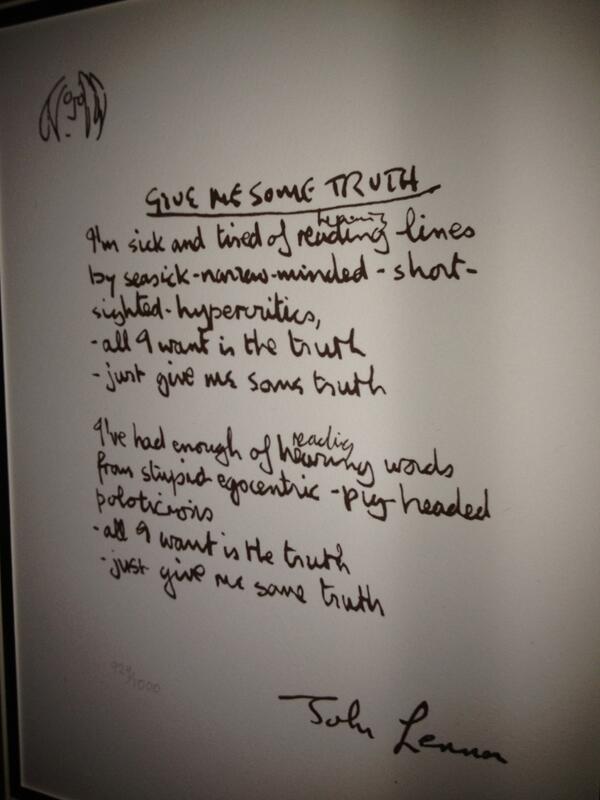 GIVE ME SOME TRUTH
hearing
I'm sick and tired of reading lines
by seasick-narrow-minded-short-
sighted-hypercritics,
-all I want is the truth
-just give me some truth
reading
I've had enough of hearing words
from stupid-egocentric-pig-headed
poloticions
-all I want is the truth
-just give me some truth
924/1000
John Lennon